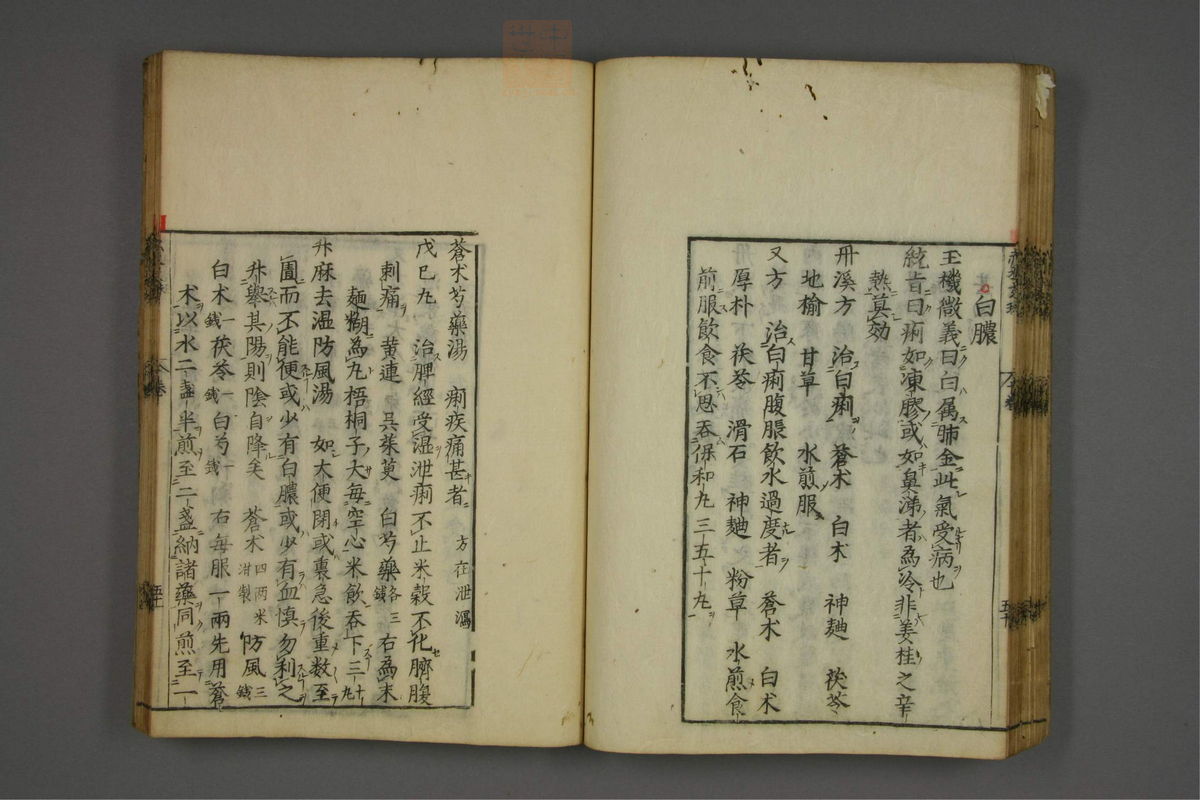 白膿
玉機微義曰白属肺金此氣受病也
統旨曰痢如凍膠或如鼻涕者為冷非姜桂之辛
熱莫効
丹溪方　治白痢　蒼朮　白朮　神麯　茯苓
地榆　甘草　水煎服
又方　治白痢腹脹飲水過度者　蒼朮　白朮
厚朴　茯苓　滑石　神麯　粉草　水煎食
前服飲食不思吞保和丸三五十丸
蒼朮芍藥湯　痢疾痛甚者　方在泄瀉
戊己丸　治脾經受湿泄痢不止米穀不化臍腹
刺痛　黄連　呉茱萸　白芍藥各三錢　右為末
麺糊為丸梧桐子大每空心米飲吞下三十丸
升麻去温防風湯　如大便閉或裏急後重数至
圊而不能便或少有白膿或少有血慎勿利之
升舉其陽則陰自降矣　蒼朮四両米泔製　防風三錢
白朮一錢　茯苓一錢　白芍一錢　右每服一兩先用蒼
朮以水二盞半煎至二盞納諸藥同煎至一